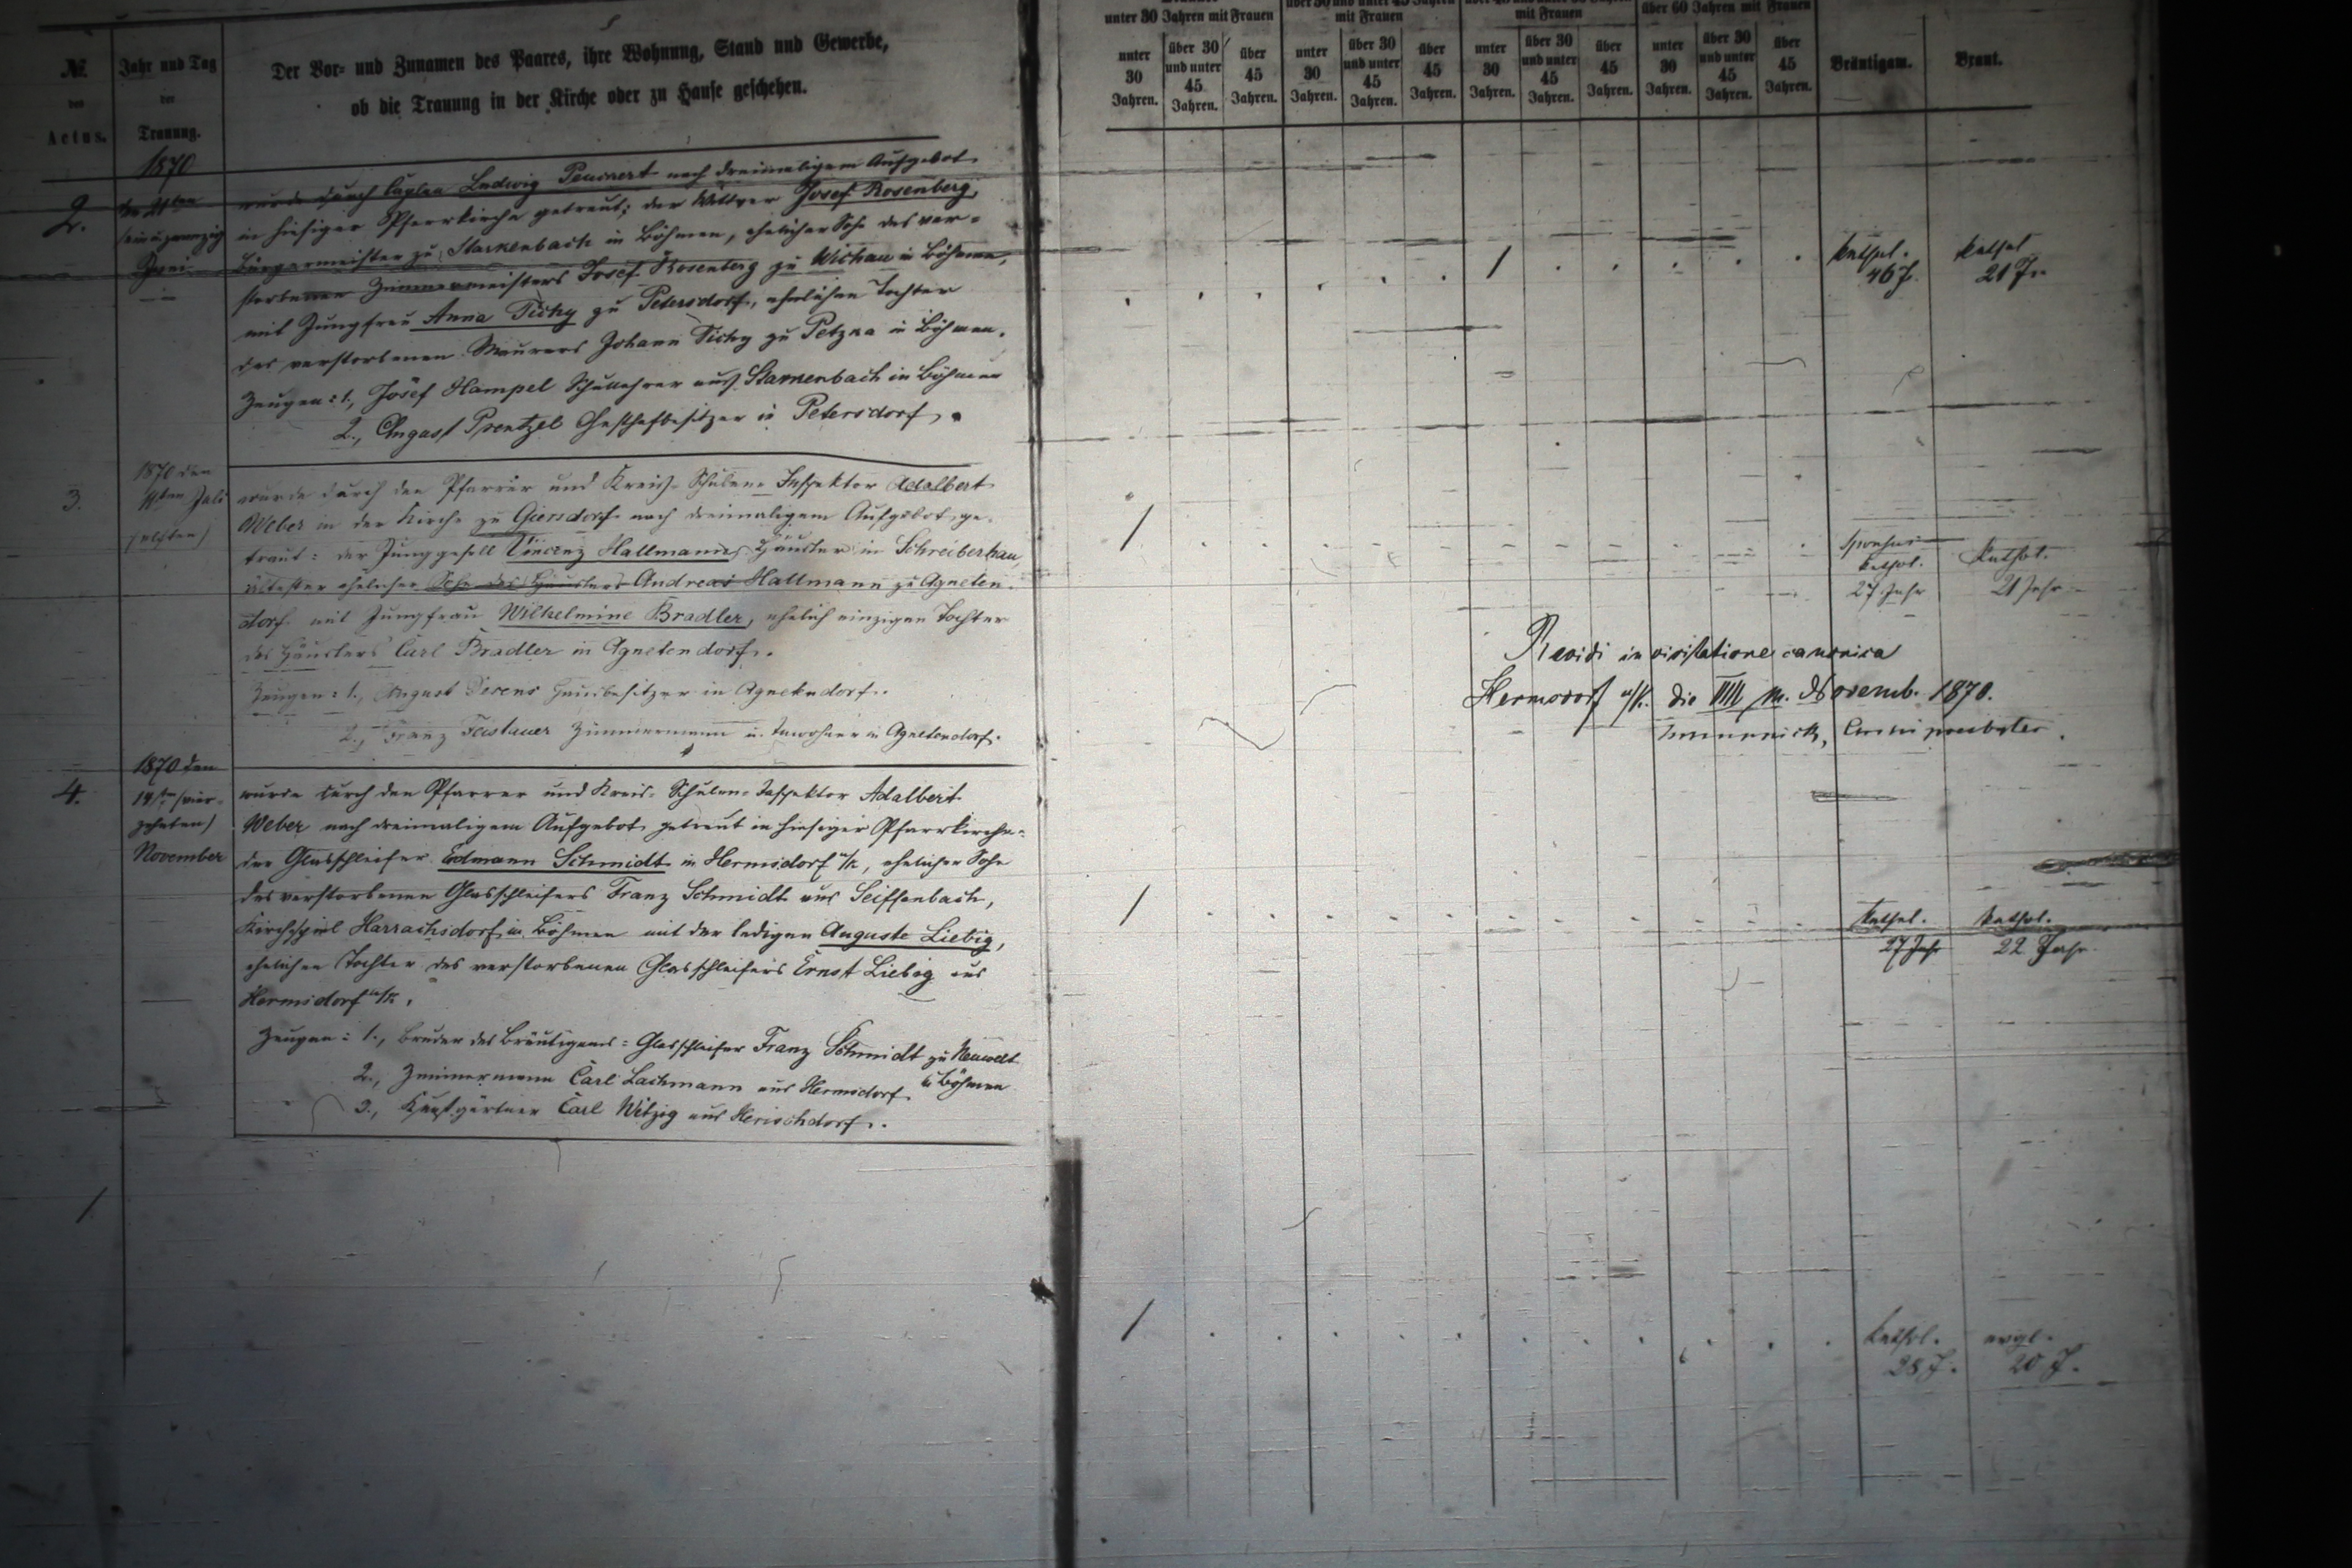 №
des
Actus.
Jahr und Tag
der
Trauung.
Der Vor- und Zunamen des Paares, ihre Wohnung, Stand und Gewerbe,
ob die Trauung in der Kirche oder zu Hause geschehen.
unter 30 Jahren mit Frauen
über 30 und unter 45 Jahren
mit Frauen
mit Frauen
über 60 Jahren mit Frauen
unter 30 Jahren.
über 30 und unter 45 Jahren.
über 45 Jahren.
unter 30 Jahren.
über 30 und unter 45 Jahren.
über 45 Jahren.
unter 30 Jahren.
über 30 und unter 45 Jahren.
über 45 Jahren.
unter 30 Jahren.
über 30 und unter 45 Jahren.
über 45 Jahren.
Bräutigam.
Braut.
1870
2.
den 21ten
Juni
wurde durch Caplan Ludwig nach dreimaligem Aufgebot
in hiesiger Pfarrkirche getraut: der Wittwer Josef Rosenberg,
Bürgermeister zu Starkenbach in Böhmen, ehelicher Sohn des ver-
storbenen Zimmermeisters Josef Rosenberg zu Wichau in Böhmen,
mit Jungfrau Anna Tichy zu Petersdorf, ehelichen Tochter
des verstorbenen Maurers Johann Tichy zu Petzka in Böhmen.
Zeugen: 1., Josef Hampel Schullehrer aus Starkenbach in Böhmen
2., August Prentzel Gasthofbesitzer in Petersdorf.
1
kathol.
46 J.
kathol.
21 J.
3.
1870 den
11ten Juli
(elften)
wurde durch den Pfarrer und Kreis-Schulen-Inspektor Adalbert
Weber in der Kirche zu Giersdorf nach dreimaligem Aufgebot ge-
traut: der Junggesell Vincenz Hallmann, Häusler in Schreiberhau,
ältester ehelicher Sohn des Häuslers Andreas Hallmann zu Agneten-
dorf mit Jungfrau Wilhelmine Bradler, ehelich einzigen Tochter
des Häuslers Carl Bradler in Agnetendorf.
Zeugen: 1., August Hausbesitzer in Agnetendorf.
2., Franz Feistauer Zimmermann u. Inwohner in Agnetendorf.
1
Sponsus
kathol.
27 Jahr
Kathol.
21 Jahr
Revidi in visitatione canonica
Hermsdorf u/K. die VIII m. Novemb. 1870.
Archipresbyter.
4.
1870 den
14ten (vier-
zehnten)
November
wurde durch den Pfarrer und Kreis-Schulen-Inspektor Adalbert
Weber nach dreimaligem Aufgebot getraut in hiesiger Pfarrkirche:
der Glasschleifer Edmann Schmidt in Hermsdorf u/K, ehelicher Sohn
des verstorbenen Glasschleifers Franz Schmidt aus Seiffenbach,
Kirchspiel Harrachsdorf in Böhmen mit der ledigen Auguste Liebig,
ehelichen Tochter des verstorbenen Glasschleifers Ernst Liebig aus
Hermsdorf u/K.
Zeugen: 1., Bruder des Bräutigams: Glasschleifer Franz Schmidt zu Neuwelt
in Böhmen
2., Zimmermann Carl Lachmann aus Hermsdorf
3., Kunstgärtner Carl Witzig aus Herischdorf.
1
kathol.
27 Jahr
kathol.
22 Jahr
1
kathol.
28 J.
evgl.
20 J.